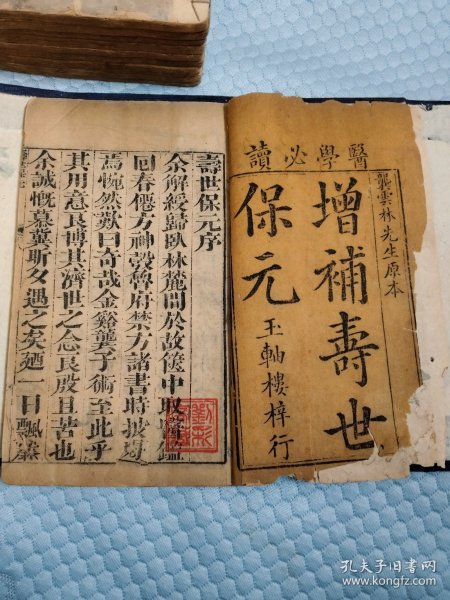 醫學必讀
龔雲林先生原本
增補壽世
保元
玉軸樓梓行
壽世保元序
余解綬歸臥林麓間於故篋中取醫鑑
回春僊方神彀魯府禁方諸書時披
焉惋然歎曰奇哉金谿龔子術至此乎
其用意良博其濟世之念良殷且苦也
余誠慨慕冀昕夕遇之矣廼一日飄
孔夫子旧书网
www.kongfz.com